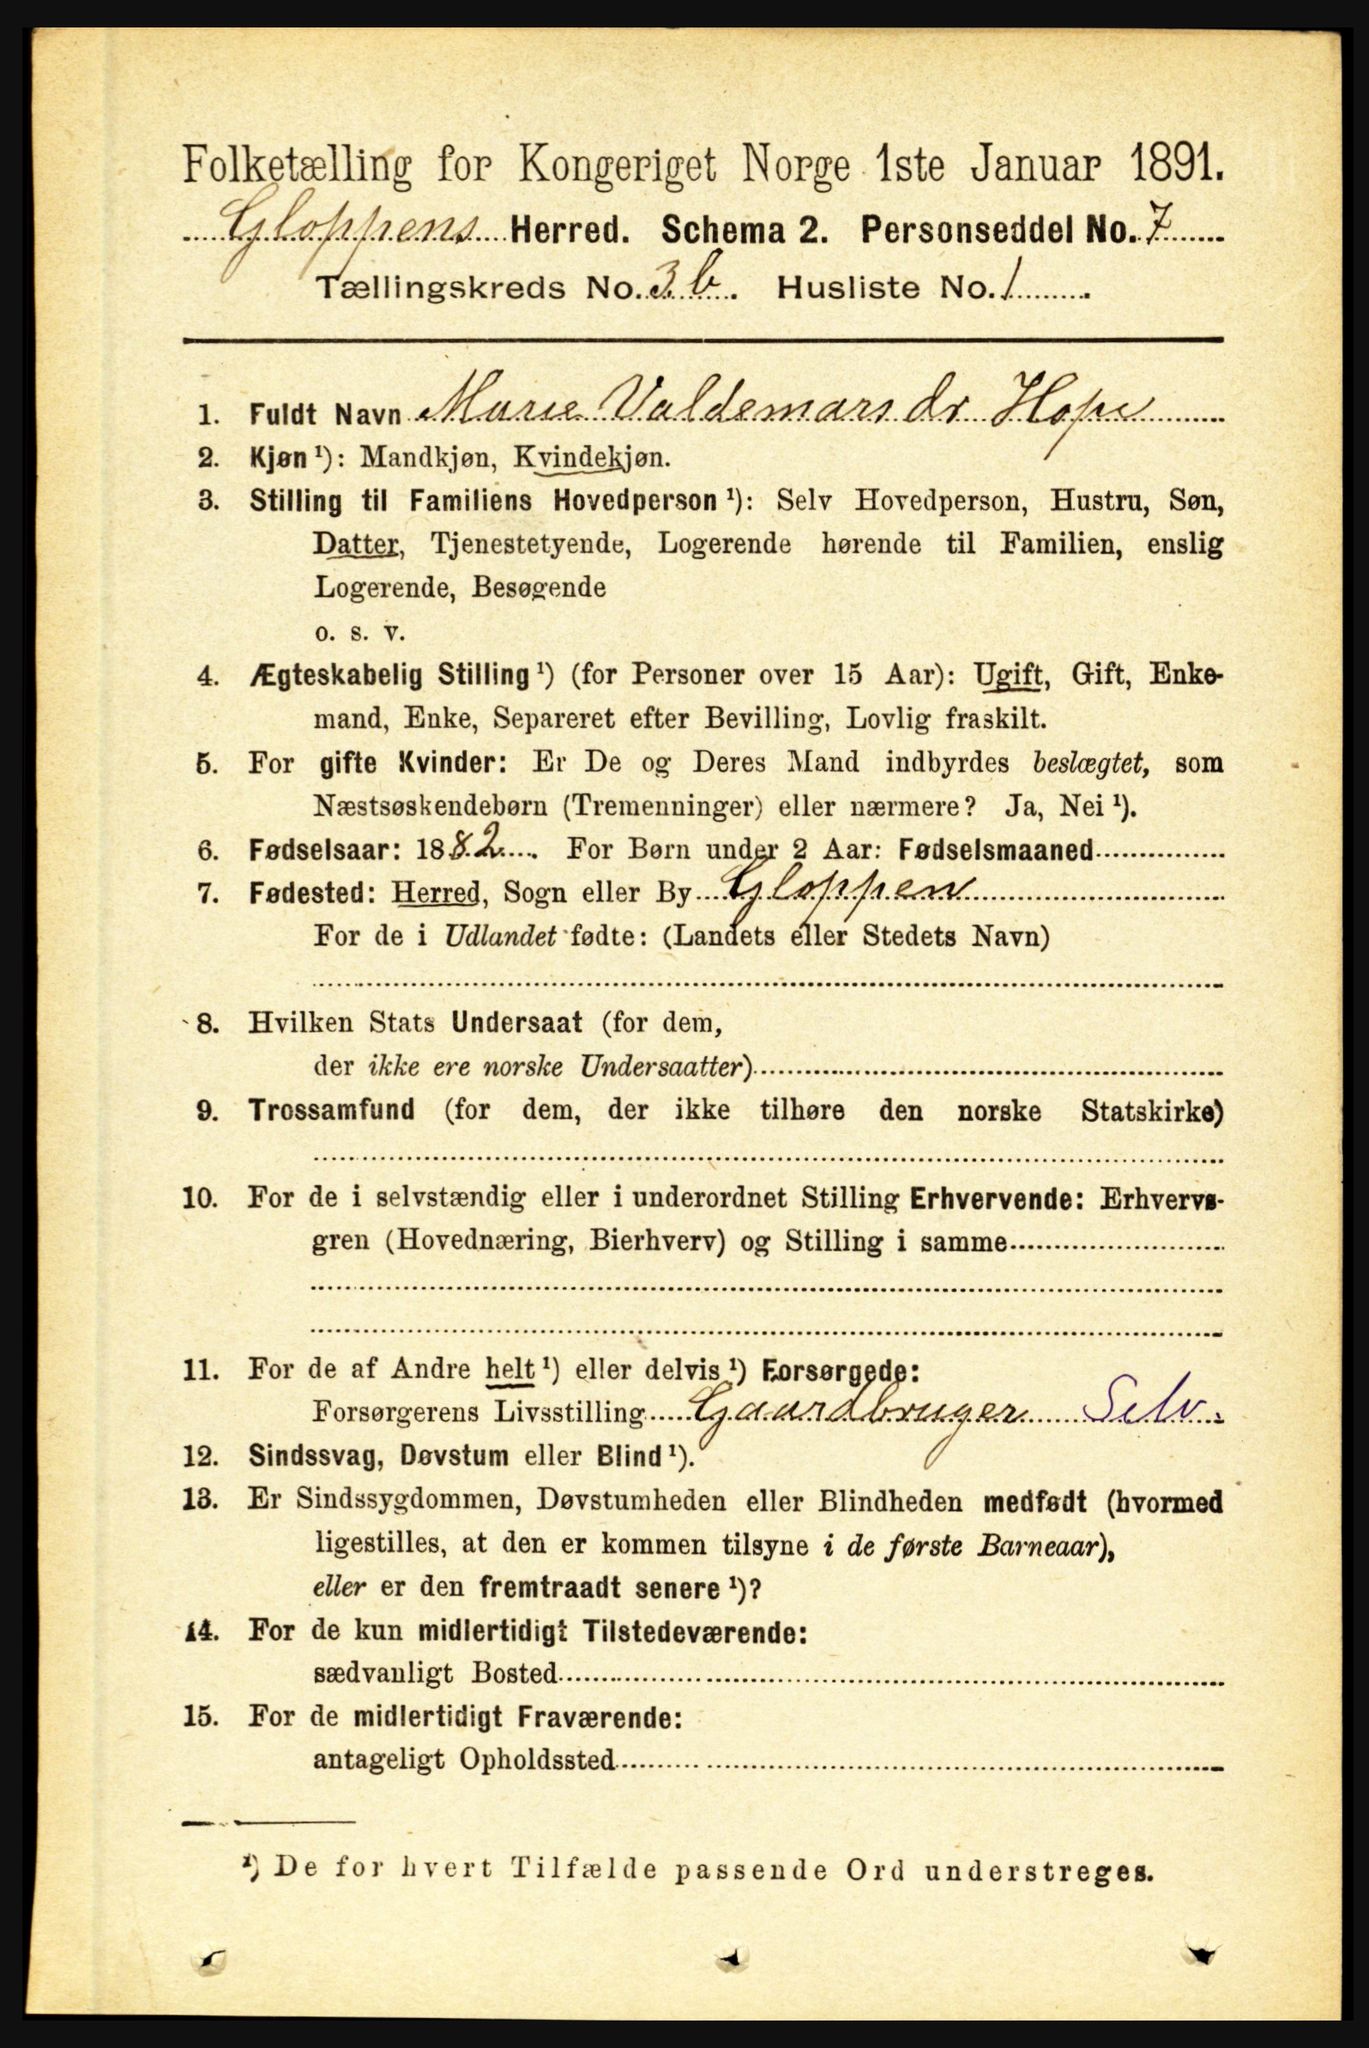 Folketælling for Kongeriget Norge 1ste Januar 1891.
Gloppens Herred. Schema 2. Personseddel No. 7
Tællingskreds No. 3 b. Husliste No. 1.
1. Fuldt Navn Marie Valdemarsdr Hope
2. Kjøn ¹): Mandkjøn, Kvindekjøn.
3. Stilling til Familiens Hovedperson ¹): Selv Hovedperson, Hustru, Søn,
Datter, Tjenestetyende, Logerende hørende til Familien, enslig
Logerende, Besøgende
o. s. v.
4. Ægteskabelig Stilling ¹) (for Personer over 15 Aar): Ugift, Gift, Enke-
mand, Enke, Separeret efter Bevilling, Lovlig fraskilt.
5. For gifte Kvinder: Er De og Deres Mand indbyrdes beslægtet, som
Næstsøskendebørn (Tremenninger) eller nærmere? Ja, Nei ¹).
6. Fødselsaar: 1882. For Børn under 2 Aar: Fødselsmaaned
7. Fødested: Herred, Sogn eller By Gloppen
For de i Udlandet fødte: (Landets eller Stedets Navn)
8. Hvilken Stats Undersaat (for dem,
der ikke ere norske Undersaatter)
9. Trossamfund (for dem, der ikke tilhøre den norske Statskirke)
10. For de i selvstændig eller i underordnet Stilling Erhvervende: Erhvervs-
gren (Hovednæring, Bierhverv) og Stilling i samme
11. For de af Andre helt ¹) eller delvis ¹) Forsørgede:
Forsørgerens Livsstilling Gaardbruger Selv.
12. Sindssvag, Døvstum eller Blind ¹).
13. Er Sindssygdommen, Døvstumheden eller Blindheden medfødt (hvormed
ligestilles, at den er kommen tilsyne i de første Barneaar),
eller er den fremtraadt senere ¹)?
14. For de kun midlertidigt Tilstedeværende:
sædvanligt Bosted
15. For de midlertidigt Fraværende:
antageligt Opholdssted
¹) De for hvert Tilfælde passende Ord understreges.